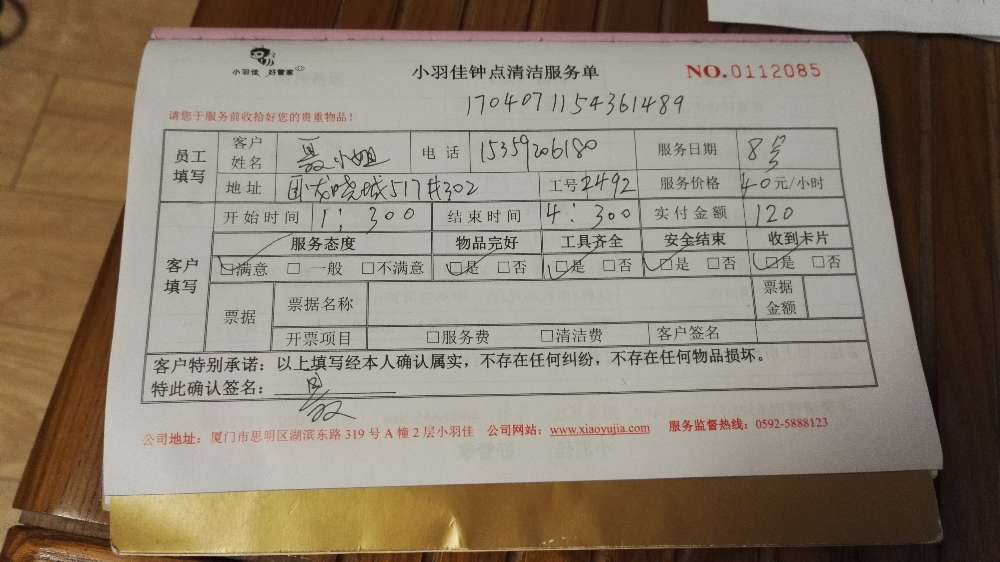 小羽佳 好管家
小羽佳钟点清洁服务单
NO.0112085
1704071154361489
请您于服务前收拾好您的贵重物品!
员工填写 客户姓名 聂小姐 电话 15359206180 服务日期 8号
地址 国龙晓城517#302 工号 2492 服务价格 40元/小时
客户填写 开始时间 1:300 结束时间 4:300 实付金额 120
服务态度 物品完好 工具齐全 安全结束 收到卡片
☑满意 □一般 □不满意 ☑是 □否 ☑是 □否 ☑是 □否 ☑是 □否
票据 票据名称 票据金额
开票项目 □服务费 □清洁费 客户签名
客户特别承诺:以上填写经本人确认属实,不存在任何纠纷,不存在任何物品损坏。
特此确认签名:聂
公司地址:厦门市思明区湖滨东路319号A幢2层小羽佳 公司网站:www.xiaoyujia.com 服务监督热线:0592-5888123